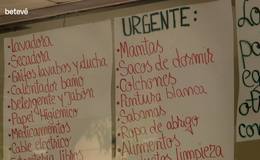 betevé
Lavadora
Secadora
Grifos lavabos y ducha
Calentador baño
Detergente y Jabón
Papel Higiénico
Medicamentos
Cable eléctrico
URGENTE:
Mantas
Sacos de dormir
Colchones
Pintura blanca
Sabanas
Ropa de abrigo
Alimentos
limpieza
Lo